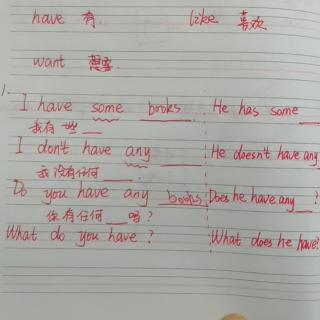 have 有 like 喜欢
want 想要
1.
I have some books He has some
我有 些
I don't have any He doesn't have any
我没有任何
Do you have any books Does he have any ?
你有任何 吗?
What do you have? What does he have?